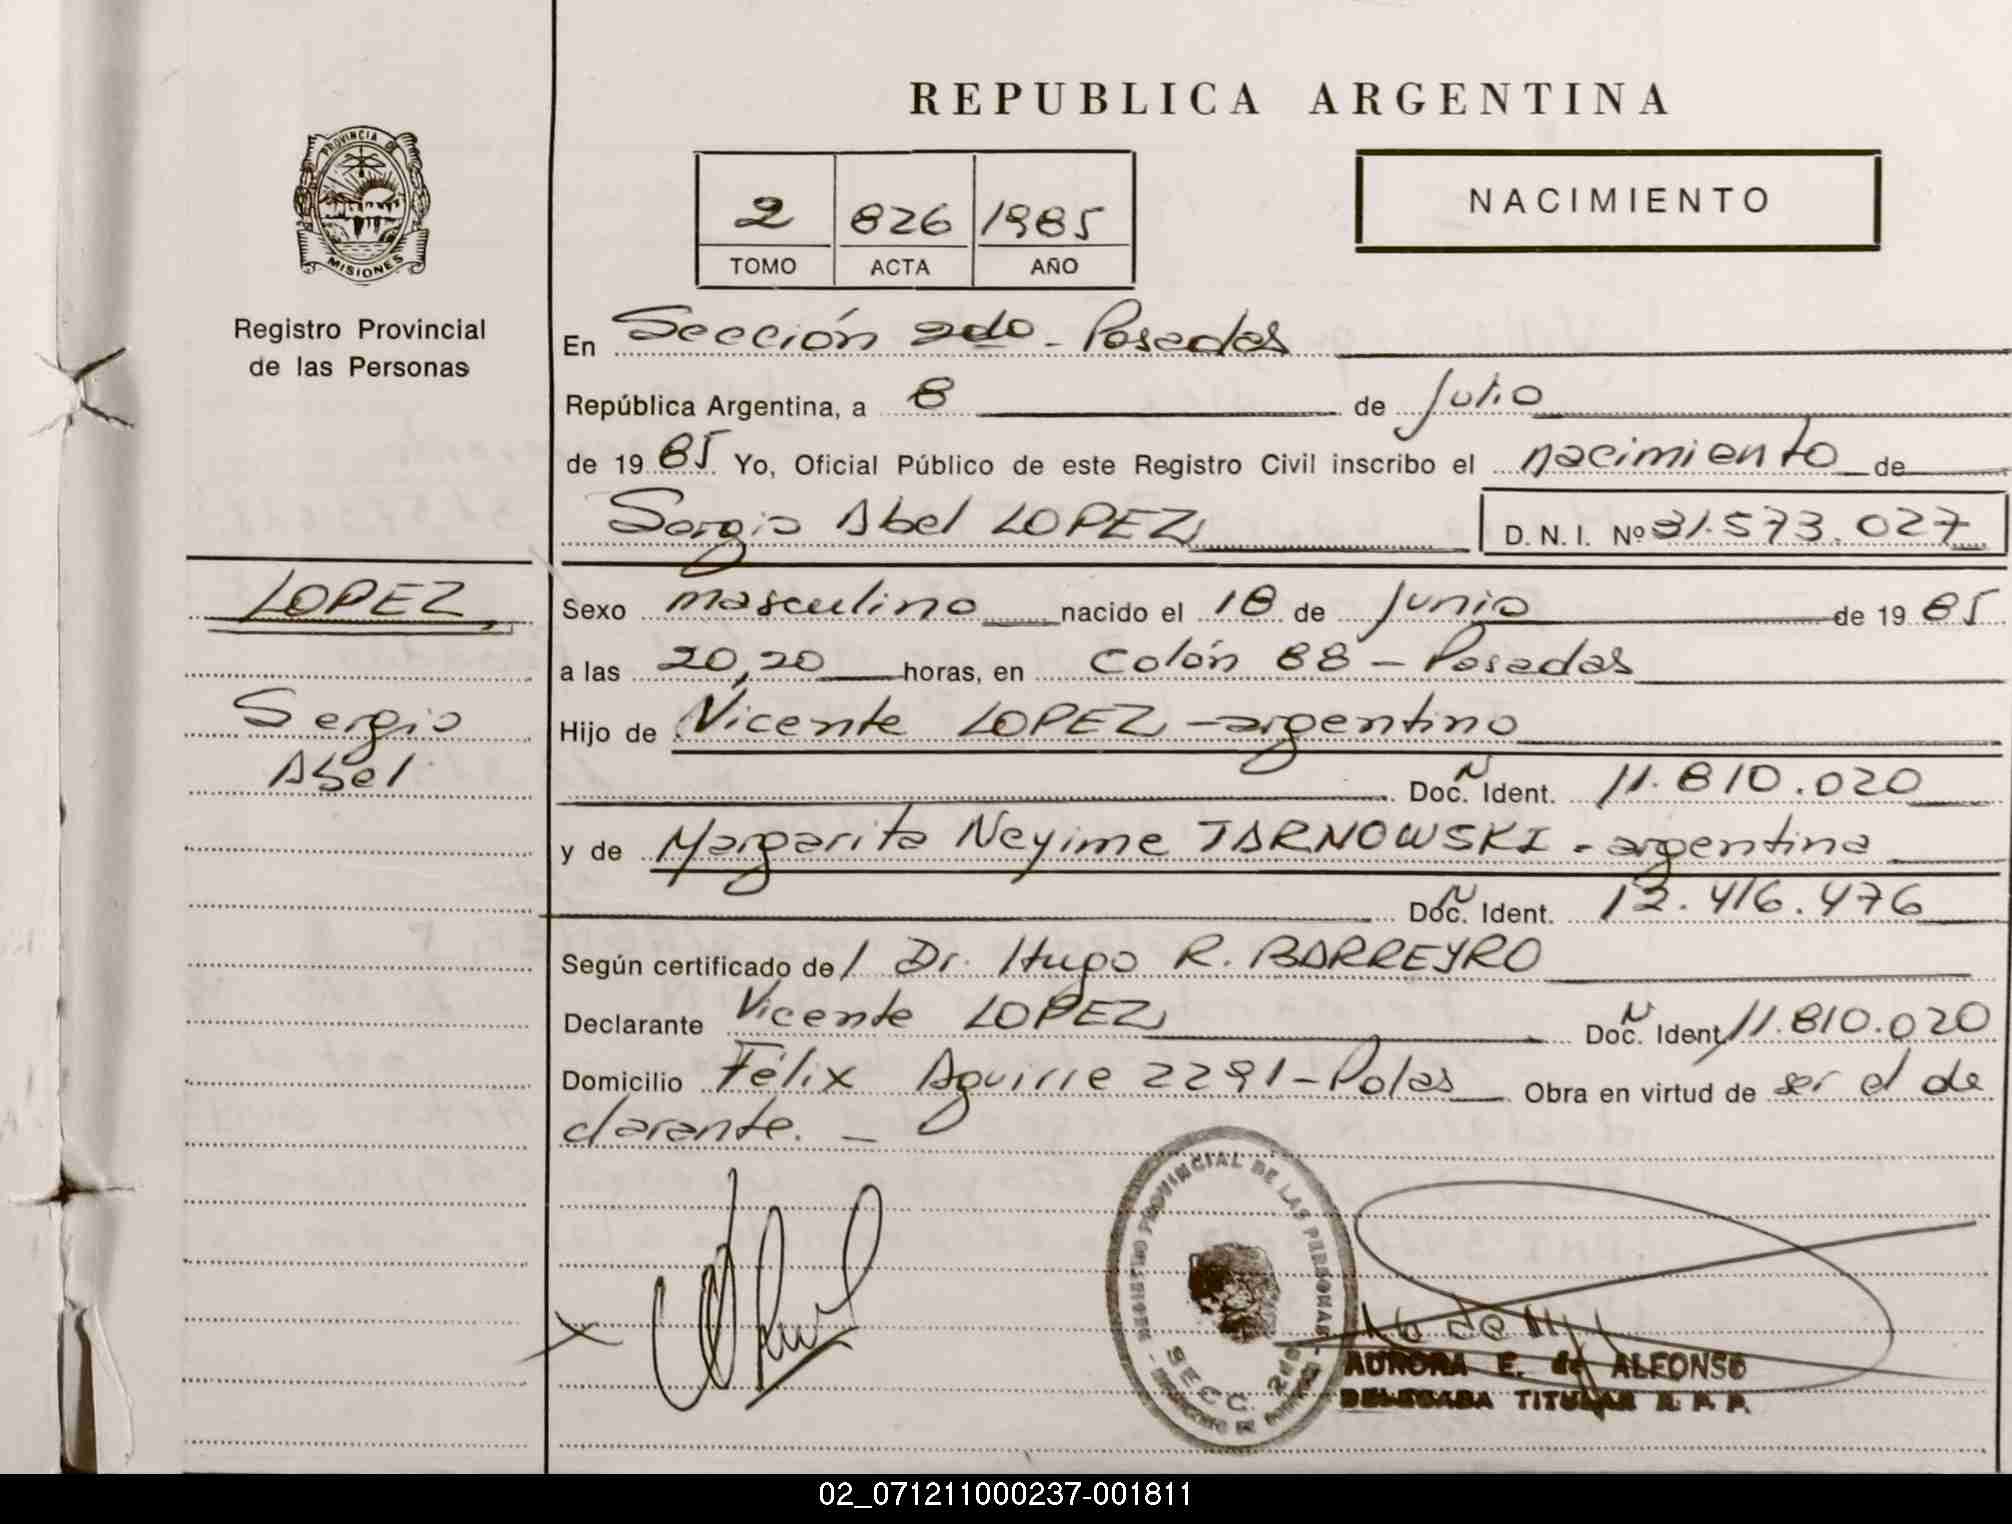 REPUBLICA ARGENTINA
PROVINCIA DE
MISIONES
Registro Provincial
de las Personas
2 826 1985
TOMO ACTA AÑO
NACIMIENTO
En Sección 2da - Posadas
República Argentina, a 8 de Julio
de 1985 Yo, Oficial Público de este Registro Civil inscribo el nacimiento de
Sergio Abel LOPEZ D. N. I. Nº 31.573.027
LOPEZ
Sergio
Abel
Sexo masculino nacido el 18 de Junio de 1985
a las 20,20 horas, en Colón 88 - Posadas
Hijo de Vicente LOPEZ - argentino
Doc. N Ident. 11.810.020
y de Margarita Neyime TARNOWSKI - argentina
Doc. N Ident. 12.416.476
Según certificado del Dr. Hugo R. BARREYRO
Declarante Vicente LOPEZ Doc. N Ident. 11.810.020
Domicilio Félix Aguirre 2291 - Pdas Obra en virtud de ser el de
clarante. -
REGISTRO PROVINCIAL DE LAS PERSONAS
SECC. 2da
AURORA E. de ALFONSO
DELEGADA TITULAR R. P. P.
02_071211000237-001811